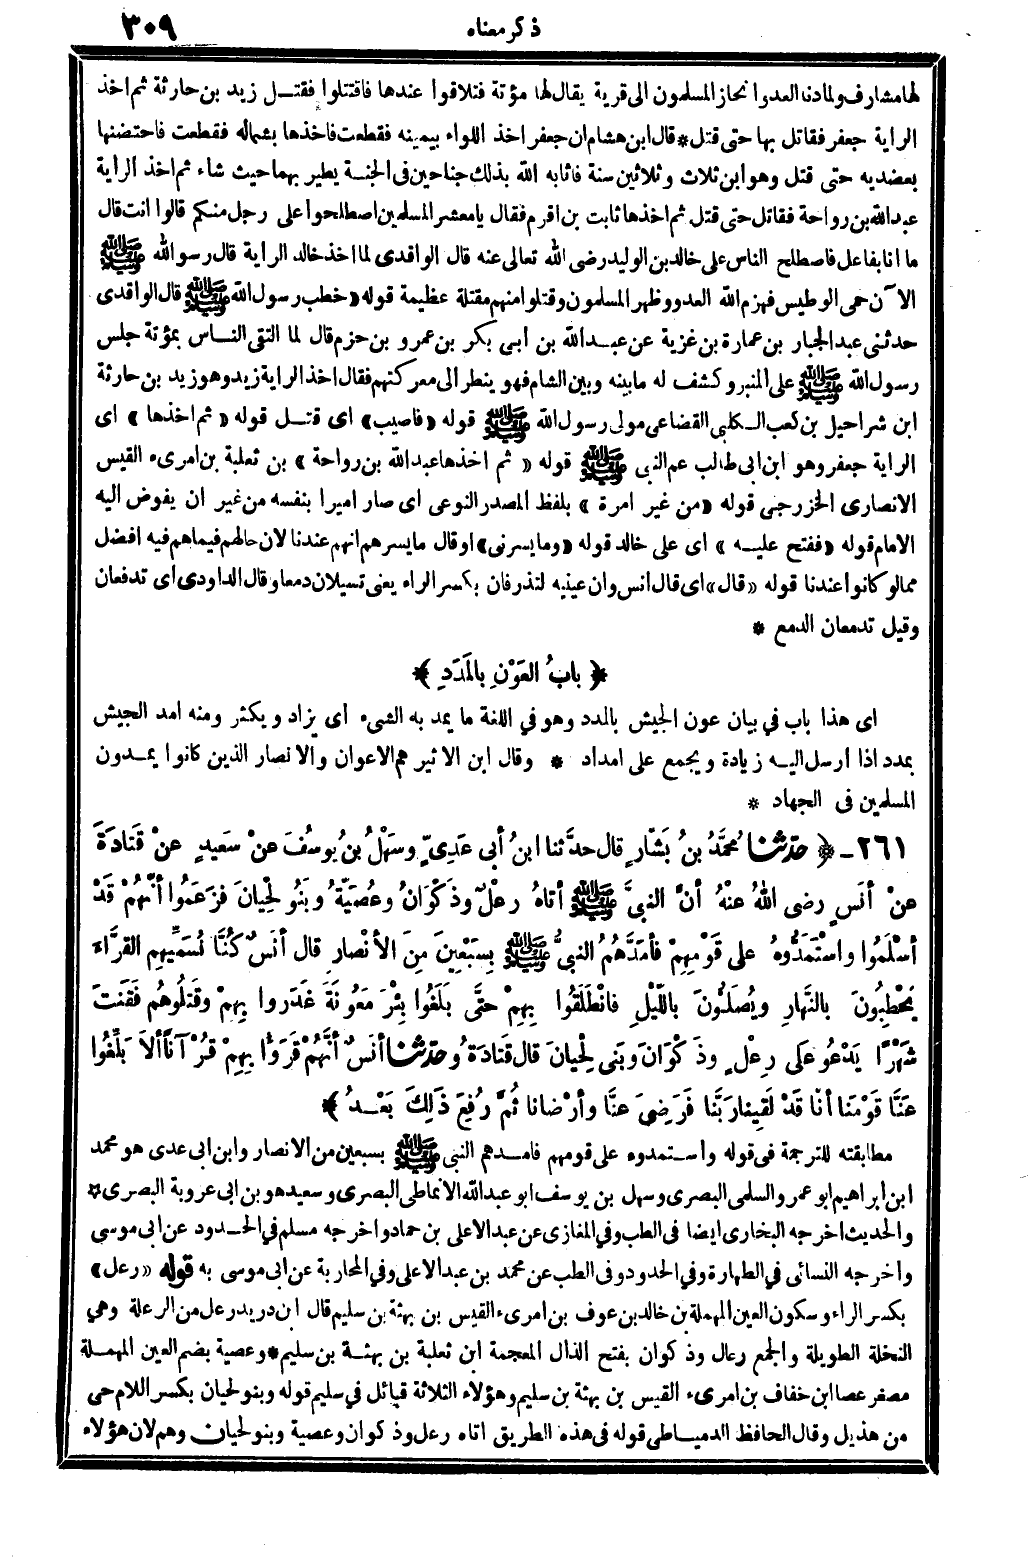 ذكر معناه
٣٠٩
لها مشارف ولما دنا العدو انحاز المسلمون الى قرية يقال لها مؤتة فتلاقوا عندها فاقتتلوا فقتـل زيد بن حارثة ثم اخذ
الراية جعفر فقاتل بها حتى قتل * قال ابن هشام ان جعفر اخذ اللواء بيمينه فقطعت فاخذها بشماله فقطعت فاحتضنها
بعضديه حتى قتل وهو ابن ثلاث وثلاثين سنة فاثابه الله بذلك جناحين فى الجنة يطير بهما حيث شاء ثم اخذ الراية
عبدالله بن رواحة فقاتل حتى قتل ثم اخذها ثابت بن اقرم فقال يا معشر المسلمين اصطلحوا على رجل منكم قالوا انت قال
ما انا بفاعل فاصطلح الناس على خالد بن الوليد رضى الله تعالى عنه قال الواقدى لما اخذ خالد الراية قال رسول الله ﷺ
الآن حمى الوطيس فهزم الله العدو وظهر المسلمون وقتلوا منهم مقتلة عظيمة قوله «خطب رسول الله ﷺ قال الواقدى
حدثنى عبد الجبار بن عمارة بن غزية عن عبـد الله بن أبى بكر بن عمرو بن حزم قال لما التقى النـاس بمؤتة جلس
رسول الله ﷺ على المنبر وكشف له ما بينه وبين الشام فهو ينظر الى معركتهم فقال اخذ الراية زيد وهو زيد بن حارثة
ابن شراحيل بن كعب الـكلبى القضاعى مولى رسول الله ﷺ قوله «فاصيب» اى قتـل قوله «ثم اخذها» اى
الراية جعفر وهو ابن ابى طالب عم النبى ﷺ قوله «ثم اخذها عبد الله بن رواحة» بن ثعلبة بن امرىء القيس
الانصارى الخزرجى قوله «من غير امرة» بلفظ المصدر النوعى اى صار اميرا بنفسه من غير ان يفوض اليه
الامام قوله «ففتح عليـه» اى على خالد قوله «وما يسرنى» او قال ما يسرهم انهم عندنا لان حالهم فيما هم فيه افضل
مما لو كانوا عندنا قوله «قال» اى قال انس وان عينيه لتذرفان بكسر الراء يعنى تسيلان دمعا وقال الداودى اى تدفعان
وقيل تدمعان الدمع *
﴿ بابُ العَوْنِ بِالمَدَدِ ﴾
اى هذا باب في بيان عون الجيش بالمدد وهو في اللغة ما يمد به الشىء أى يزاد ويكثر ومنه امد الجيش
بمدد اذا أرسل اليـه زيادة ويجمع على امداد * وقال ابن الاثير هم الاعوان والانصار الذين كانوا يمـدون
المسلمين فى الجهاد *
٢٦١ ـ ﴿ حدّثنا مُحمَّدُ بنُ بَشّارٍ قال حدّثنا ابنُ أبى عَدِىٍّ وسَهْلُ بنُ يوسُفَ عنْ سَعيدٍ عنْ قَتادَةَ
عنْ أنَسٍ رضى اللهُ عنْهُ أنَّ النبىَّ ﷺ أتاهُ رِعْلٌ وذَكْوَانُ وعُصَيَّةُ وبَنُو لَحْيانَ فَزَعَمُوا أنَّهُمْ قَدْ
أسْلَمُوا واسْتَمَدُّوهُ على قَوْمِهِمْ فأمَدَّهُمُ النبىُّ ﷺ بِسَبْعِينَ مِنَ الأنْصارِ قال أنَسٌ كُنَّا نُسَمِّيهِمِ القرَّاءَ
يَحْطِبُونَ بالنَّهارِ ويُصَلُّونَ باللَّيْلِ فانْطَلَقُوا بِهِمْ حتَّى بَلَغُوا بِئْرَ مَعُونَةَ غَدَروا بِهِمْ وقَتَلُوهُم فَقَنَتَ
شَهْرًا يَدْعُو عَلى رِعْلٍ وذَكْوَانَ وبَنِى لَحْيانَ قال قَتادَةُ وحدّثنا أنَسٌ أنَّهُمْ قَرَؤُا بِهِمْ قُرْآناً ألاَ بَلِّغُوا
عَنَّا قَوْمَنا أنّا قَدْ لَقِينا رَبَّنا فَرَضِىَ عنَّا وأرْضانا ثُمَّ رُفِعَ ذَلِكَ بَعْـدُ ﴾
مطابقته للترجمة فى قوله واسـتمدوه على قومهم فامـدهم النبى ﷺ بسبعين من الانصار وابن ابى عدى هو محمد
ابن ابراهيم ابو عمرو السلمى البصرى وسهل بن يوسف ابو عبدالله الانماطى البصرى وسعيد هو بن ابى عروبة البصرى *
والحديث اخرجه البخارى ايضا فى الطب وفى المغازى عن عبد الاعلى بن حماد واخرجه مسلم في الحـدود عن ابى موسى
واخرجه النسائى في الطهارة وفي الحدود وفى الطب عن محمد بن عبد الاعلى وفي المحاربة عن ابى موسى به قوله «رعل»
بكسر الراء وسكون العين المهملة بن خالد بن عوف بن امرىء القيس بن بهثة بن سليم قال ابن دريد رعل من الرعلة وهي
النخلة الطويلة والجمع رعال وذكوان بفتح الذال المعجمة ابن ثعلبة بن بهثـة بن سليم * وعصية بضم العين المهمـلة
مصغر عصا ابن خفاف بن امرىء القيس بن بهثة بن سليم وهؤلاء الثلاثة قبائل في سليم قوله وبنو لحيان بكسر اللام حى
من هذيل وقال الحافظ الدميـاطى قوله فى هذه الطريق اتاه رعل وذكوان وعصية وبنو لحيان وهم لان هؤلاء